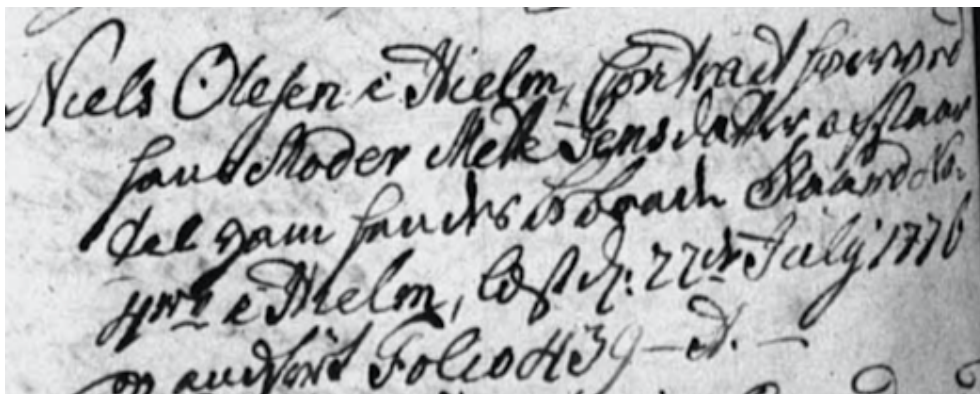 Niels Olesen i Hielm, Contract hvorved
hans Moder Mette Jensdatter afstaar
til ham hendes Gaard No:
4re i Hielm, læst d: 22de July 1776
og anført Folio 439